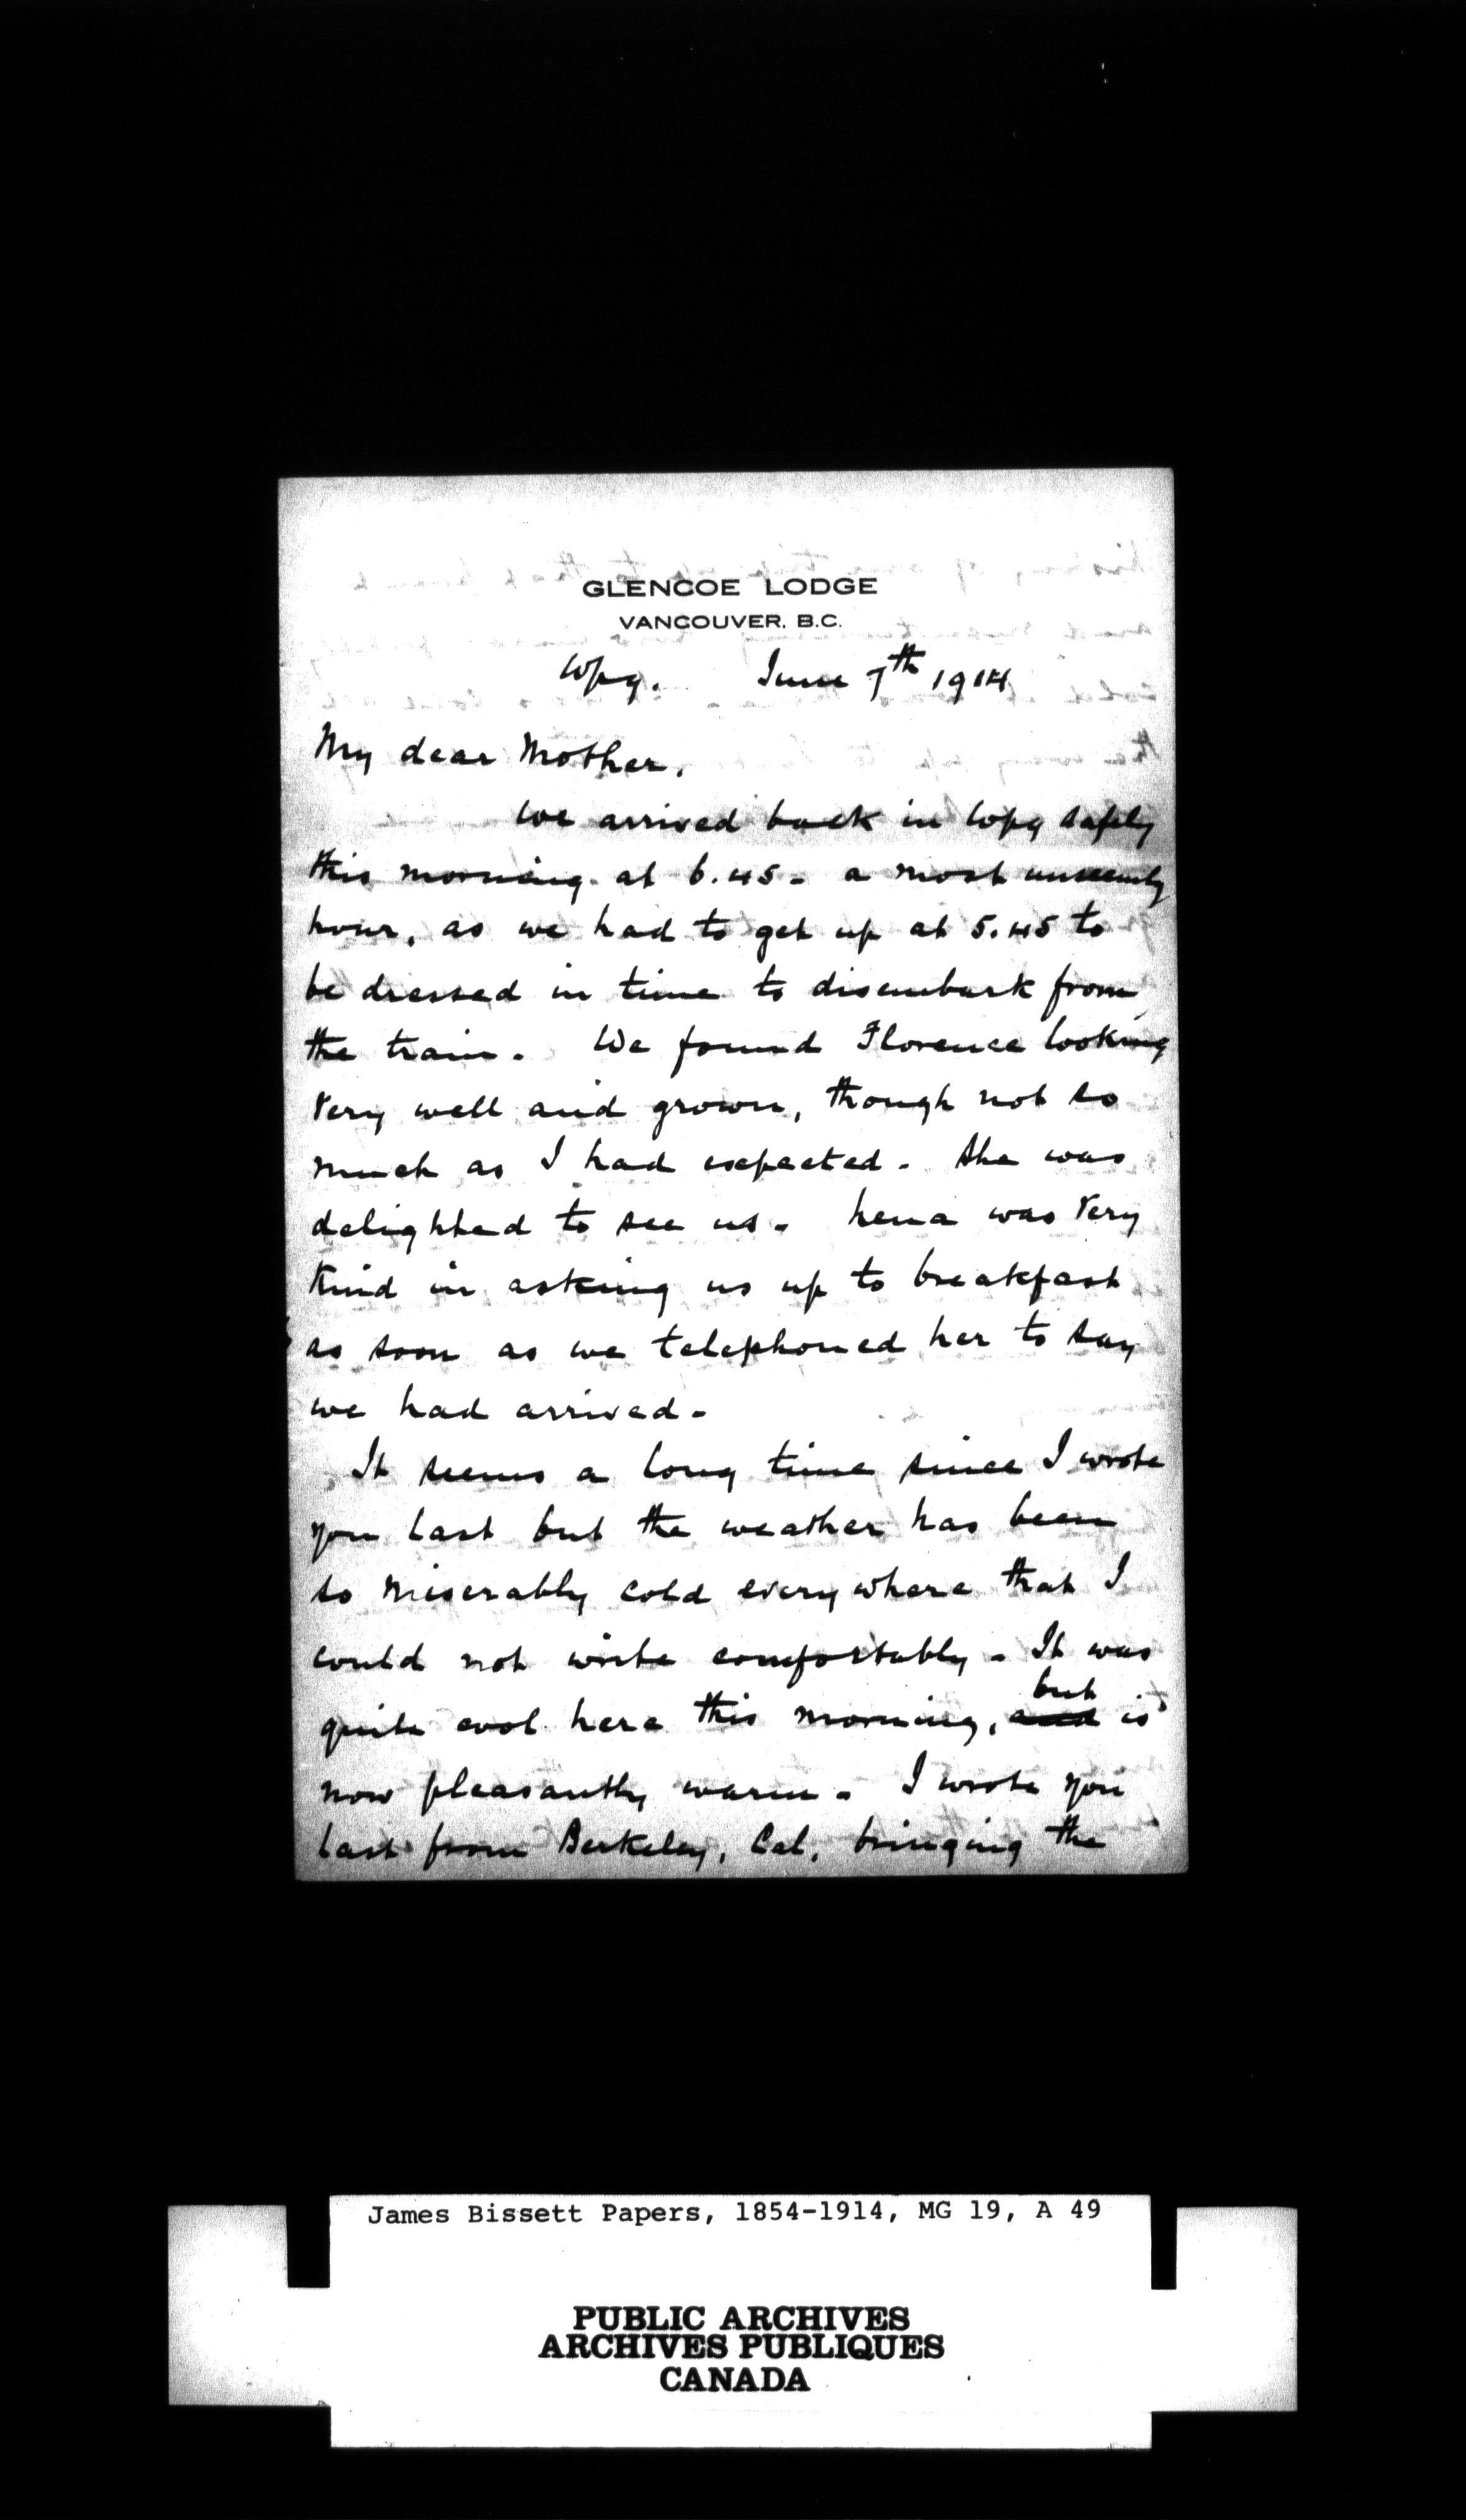 GLENCOE LODGE
VANCOUVER, B.C.
Wpg. June 7th 1914
My dear Mother,
We arrived back in Wpg safely
this morning at 6.45 - a most unseemly
hour, as we had to get up at 5.45 to
be dressed in time to disembark from
the train. We found Florence looking
very well and grown, though not so
much as I had expected. She was
delighted to see us. Lena was very
kind in asking us up to breakfast
as soon as we telephoned her to say
we had arrived.
It seems a long time since I wrote
you last but the weather has been
so miserably cold everywhere that I
could not write comfortably. It was
quite cool here this morning, and but is
now pleasantly warm. I wrote you
last from Berkeley, Cal. bringing the
James Bissett Papers, 1854-1914, MG 19, A 49
PUBLIC ARCHIVES
ARCHIVES PUBLIQUES
CANADA